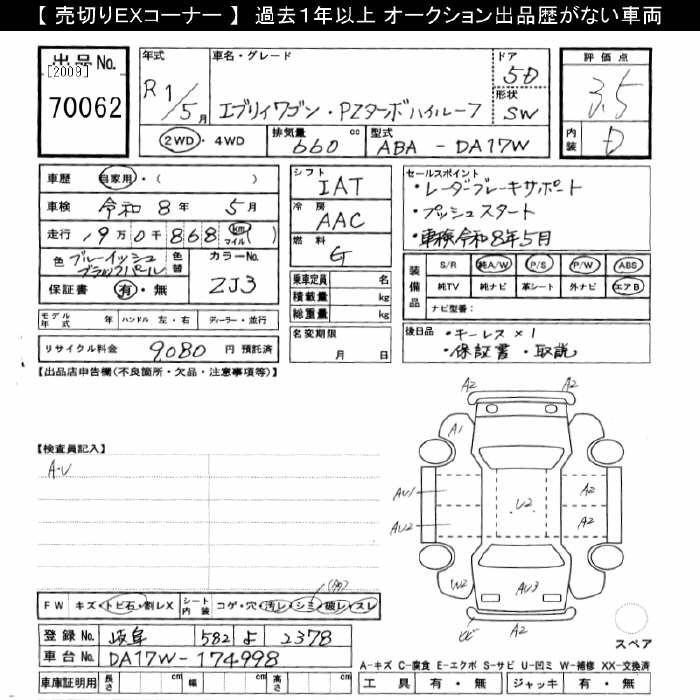 【 売切りEXコーナー 】 過去1年以上 オークション出品歴がない車両
出品No.
[2009]
70062
年式
R1/5月
車名・グレード
エブリイワゴン・PZターボハイルーフ
ドア
5D
形状
SW
2WD・4WD
排気量
660 cc
型式
ABA - DA17W
評価点
3.5
内装
D
車歴 自家用・( )
車検 令和 8年 5月
走行 19万0千868 km マイル ( )
色 ブルーイッシュブラックパール
色替
カラーNo.
ZJ3
保証書 有・無
シフト
IAT
冷房
AAC
燃料
G
セールスポイント
・レーダーブレーキサポート
・プッシュスタート
・車検令和8年5月
装備品
S/R 純A/W P/S P/W ABS
純TV 純ナビ 革シート 外ナビ エアB
ナビ型番:
乗車定員 名
積載量 kg
総重量 kg
モデル年式 年 ハンドル 左・右 ディーラー・並行
リサイクル料金 9,080 円 預託済
名変期限
月 日
後日品 ・キーレス×1
・保証書・取説
【出品店申告欄(不良箇所・欠品・注意事項等)】
【検査員記入】
A-U
A2
A2
A1
AU1
AU2
U2
A2
A2
W2
AU3
A2
スペア
FW キズ・トビ石・割レX
シート内装 コゲ・穴・汚レ・シミ・破レ・スレ
登録No. 岐阜 582 よ 2378
車台No. DA17W-174998
車庫証明用 長さ cm 幅 cm 高さ cm
A-キズ C-腐食 E-エクボ S-サビ U-凹ミ W-補修 XX-交換済
工具 有・無 ジャッキ 有・無